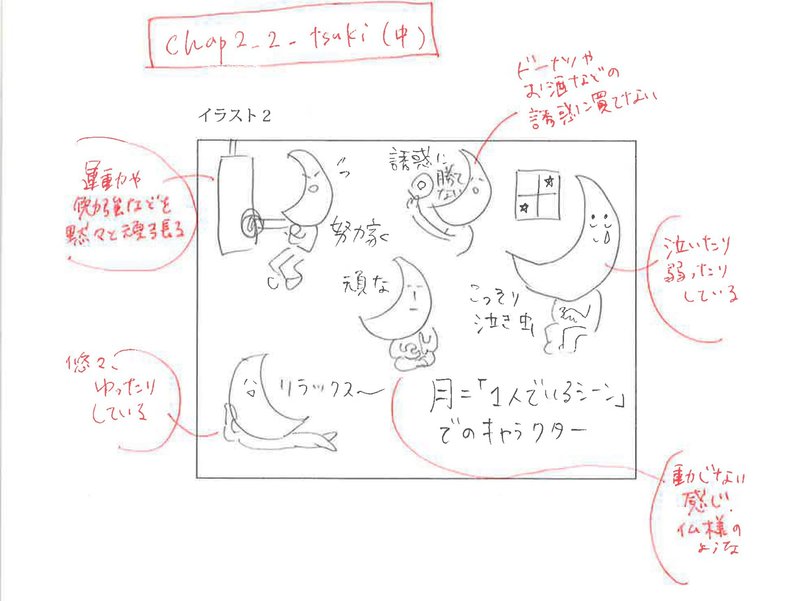 chap2_2_tsuki(中)
イラスト2
ドーナツや
お酒などの
誘惑に買てない
運動や
勉強などを
黙々と頑張る
努力家
誘惑に
勝て
ない
頑な
こっそり
泣き虫
泣いたり
弱ったり
している
悠々、
ゆったり
している
リラックス〜
月=「1人でいるシーン」
でのキャラクター
動じない
感じ.
仏様の
ような